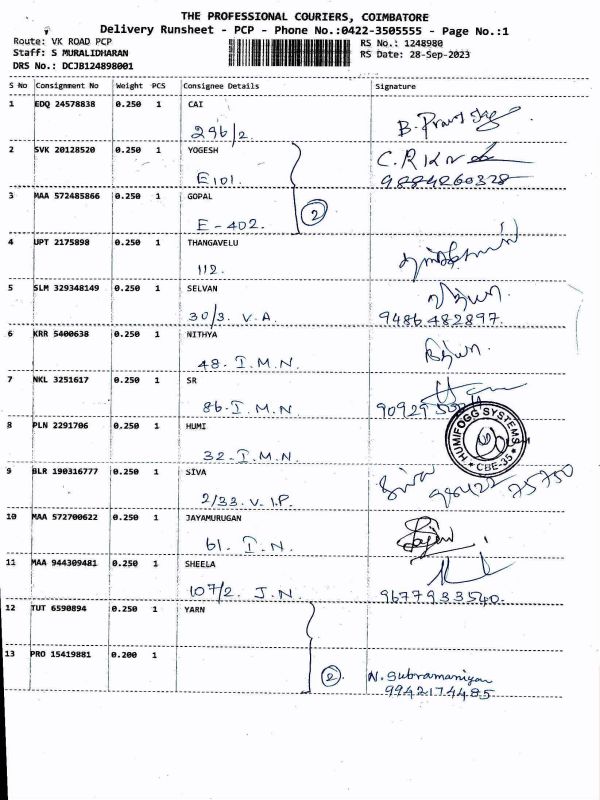 THE PROFESSIONAL COURIERS, COIMBATORE
Delivery Runsheet - PCP - Phone No.:0422-3505555 - Page No.:1
Route: VK ROAD PCP RS No.: 1248980
Staff: S MURALIDHARAN RS Date: 28-Sep-2023
DRS No.: DCJB124898001
S No Consignment No Weight PCS Consignee Details Signature
1 EDQ 24578838 0.250 1 CAI
296/2.
2 SVK 20128520 0.250 1 YOGESH
E101. 9884260328
3 MAA 572485866 0.250 1 GOPAL
E-402. 2
4 UPT 2175898 0.250 1 THANGAVELU
112.
5 SLM 329348149 0.250 1 SELVAN
30/3. V.A. 9486482897.
6 KRR 5400638 0.250 1 NITHYA
48. I.M.N.
7 NKL 3251617 0.250 1 SR
86. I.M.N
8 PLN 2291706 0.250 1 HUMI
32. I.M.N. HUMIFOGG SYSTEMS * CBE-35 *
9 BLR 190316777 0.250 1 SIVA Siva
2/33. V.I.P. 98422 75750
10 MAA 572700622 0.250 1 JAYAMURUGAN
61. I.N.
11 MAA 944309481 0.250 1 SHEELA
107/2. J.N. 9677933540.
12 TUT 6590894 0.250 1 YARN
13 PRO 15419881 0.200 1
2. N. Subramaniyan
9942174485